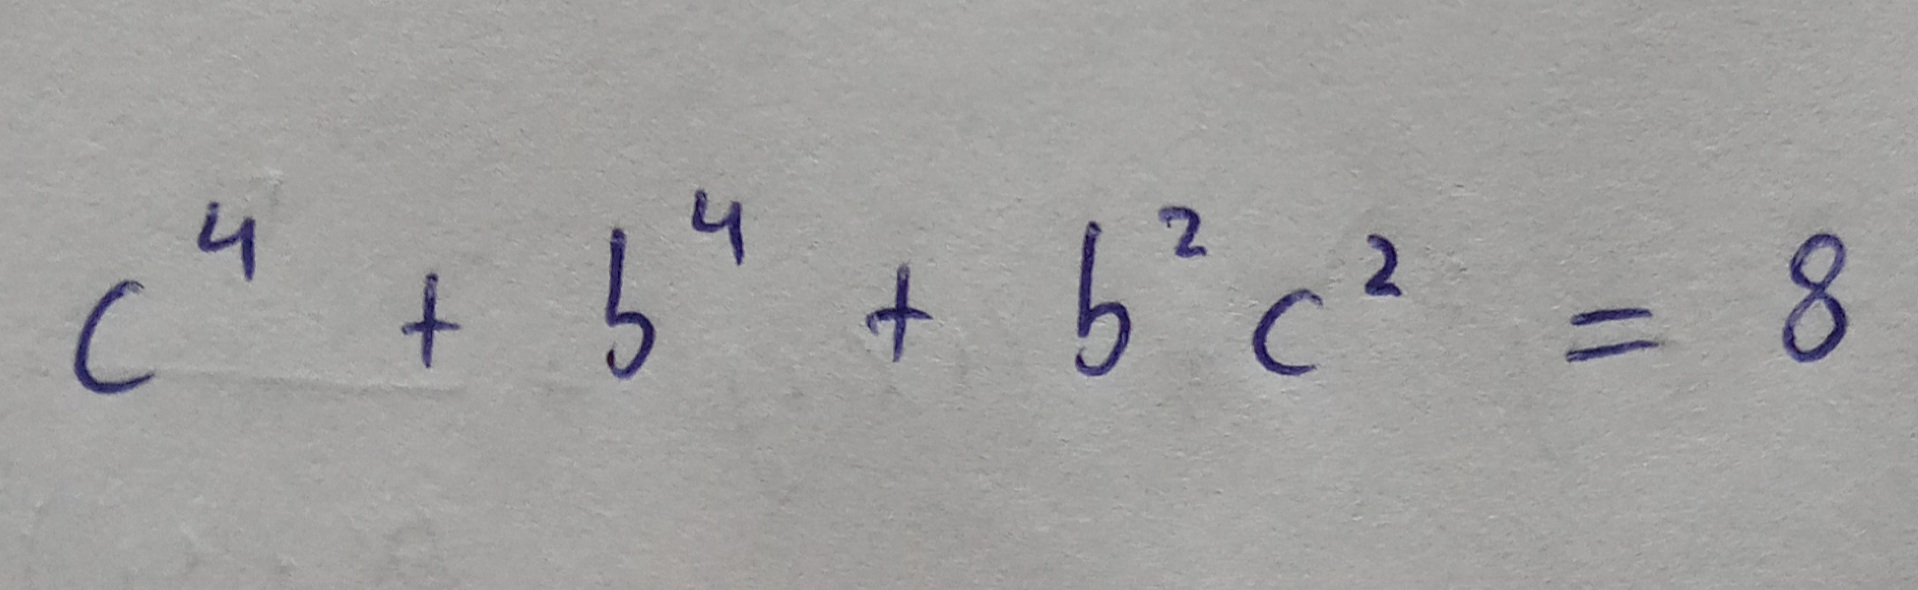 c⁴ + b⁴ + b² c² = 8